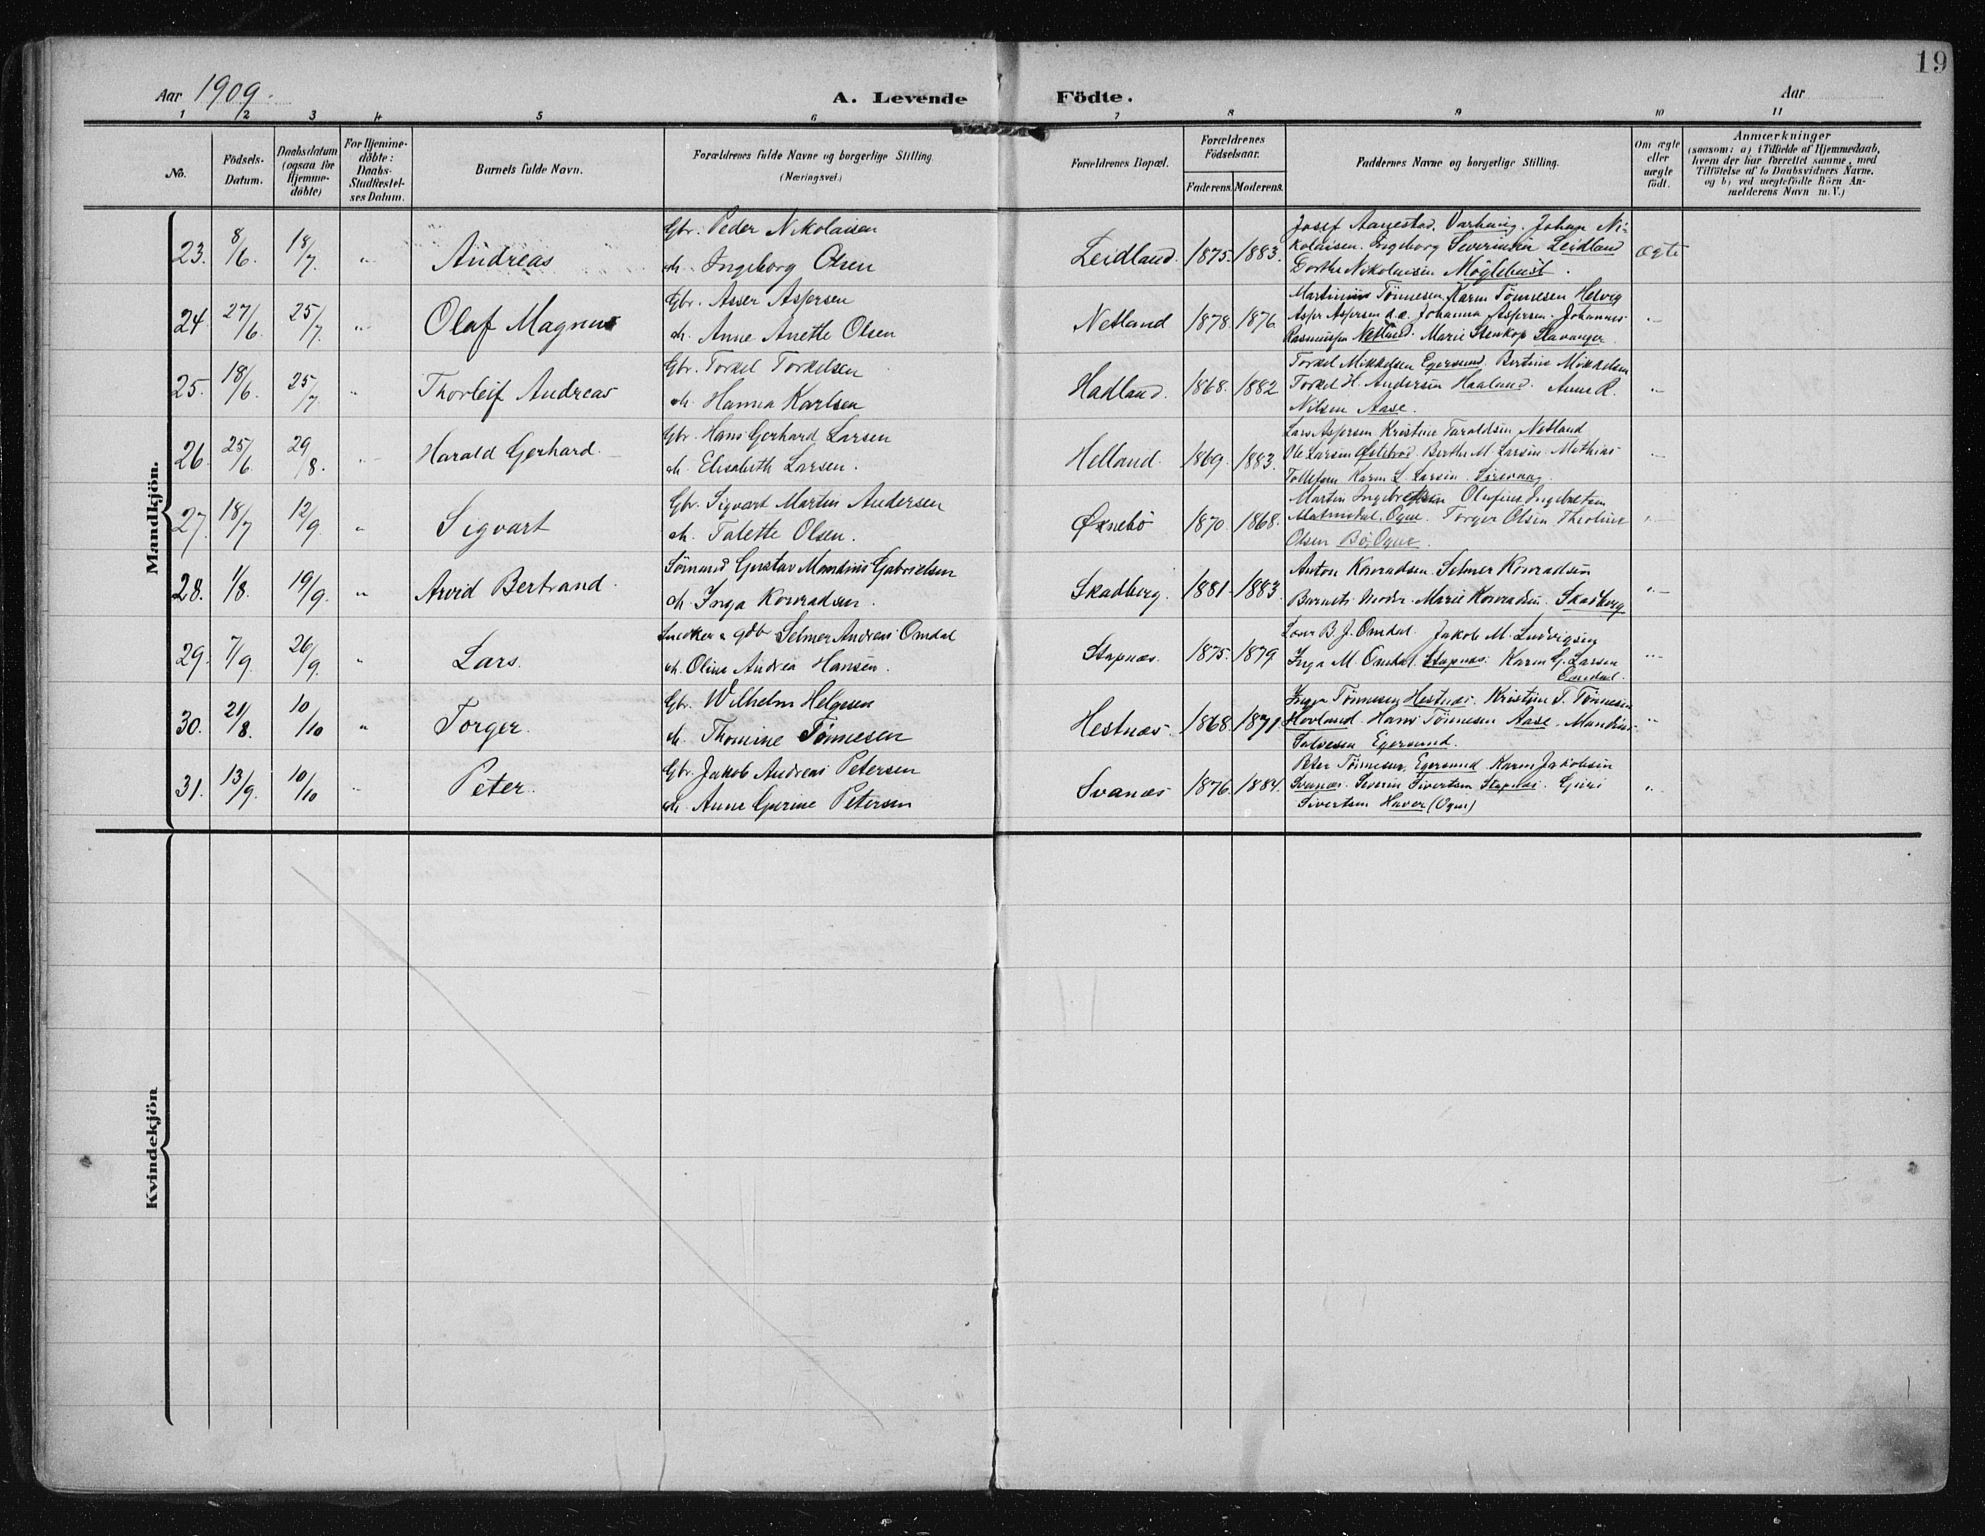 19
Aar 1909.
A. Levende Födte.
Aar
1 2 3 4 5 6 7 8 9 10 11
No.
Födsels-Datum.
Daabsdatum (ogsaa for Hjemme-döbte)
For Hjemme-döbte: Daabs-Stadfæstel-ses Datum.
Barnets fulde Navn.
Forældrenes fulde Navne og borgerlige Stilling.
(Næringsvei.)
Forældrenes Bopæl.
Forældrenes Födselsaar.
Faderens. Moderens.
Faddernes Navne og borgerlige Stilling.
Om ægte eller uægte födt.
Anmærkninger
(saasom: a) i Tilfælde af Hjemmedaab, hvem der har forrettet samme, med Tilföielse af to Daabsvidners Navne. og b) ved uægtefödte Börn An-melderens Navn m. V.)
Mandkjön.
23. 8/6. 18/7. " Andreas
Gbr. Peder Nikolaisen
oh. Ingeborg Olsen
Leidland. 1875. 1883.
Josef Aarrestad. Varhaug. Johan Ni-
kolaisen. Ingeborg Severinsen Leidland
Dorthe Nikolaisen Möglebust.
Ægte
24. 27/6. 25/7. " Olaf Magnus
Gbr. Asser Aspersen
oh. Anne Anette Olsen
Netland 1878. 1876.
Martinius Tönnesen, Karen Tönnesen Helvig
Asper Aspersen s.s. Johanna Aspersen. Johannes
Rasmussen Netland. Marie Stenkop Stavanger.
"
25. 18/6. 25/7. " Thorleif Andreas
Gbr. Torkel Torkelsen
oh. Hanna Karlsen
Hadland. 1868. 1882
Torkel Mikkelsen Egersund. Bertine Mikkelsen
Torkel H. Andersen Haaland. Anne R.
Nilsen Aase.
"
26. 25/6 29/8. " Harald Gerhard.
Gbr. Hans Gerhard Larsen
oh. Elisabeth Larsen.
Helland. 1869. 1883.
Lars Aspersen Kristine Taraldsen Netland
Ole Larsen Berthe M. Larsen. Mathias
Tollefsen Karen L. Larsen. Sirevaag.
"
27. 18/7 12/9. " Sigvart
Gbr. Sigvart Martin Andersen
oh. Talette Olsen.
Øxnebö 1870 1868.
Martin Ingebretsen Olufine Ingebretsen
Matningsdal. Ogne. Torger Olsen Theoline
Olsen Bö, Ogne.
"
28. 1/8. 19/9. " Arvid Bertrand.
Sömand Gustav Mandius Gabrielsen
oh. Inga Konradsen.
Skadberg. 1881. 1883.
Anton Konradsen. Selmer Konradsen
Barnets Moder. Marie Konradsen. Skadberg
"
29. 7/9. 26/9. " Lars.
Snedker & gdb Selmer Andreas Omdal
oh. Oline Andrea Hansen.
Stapnæs. 1875. 1879
Lars B. J. Omdal. Jakob M. Ludvigsen
Inga M. Omdal. Stapnæs. Karen G. Larsen
Omdal.
"
30. 21/8. 10/10 " Torger.
Gbr. Wilhelm Helgesen
oh. Thomine Tönnesen
Hestnæs. 1868. 1871.
Inger Tönnesen Hestnæs. Kristine S. Tönnesen
Hovland. Hans Tönnesen Aase. Mandius
Salvesen Egersund.
"
31. 13/9. 10/10 " Peter.
Gbr. Jakob Andreas Petersen
oh. Anne Gurine Petersen
Svanæs 1876. 1884.
Peter Tönnesen, Egersund. Karen Jakobsen
Svanæs. Severin Sivertsen Stapnæs. Guri
Sivertsen Haver (Ogne)
"
Kvindekjön